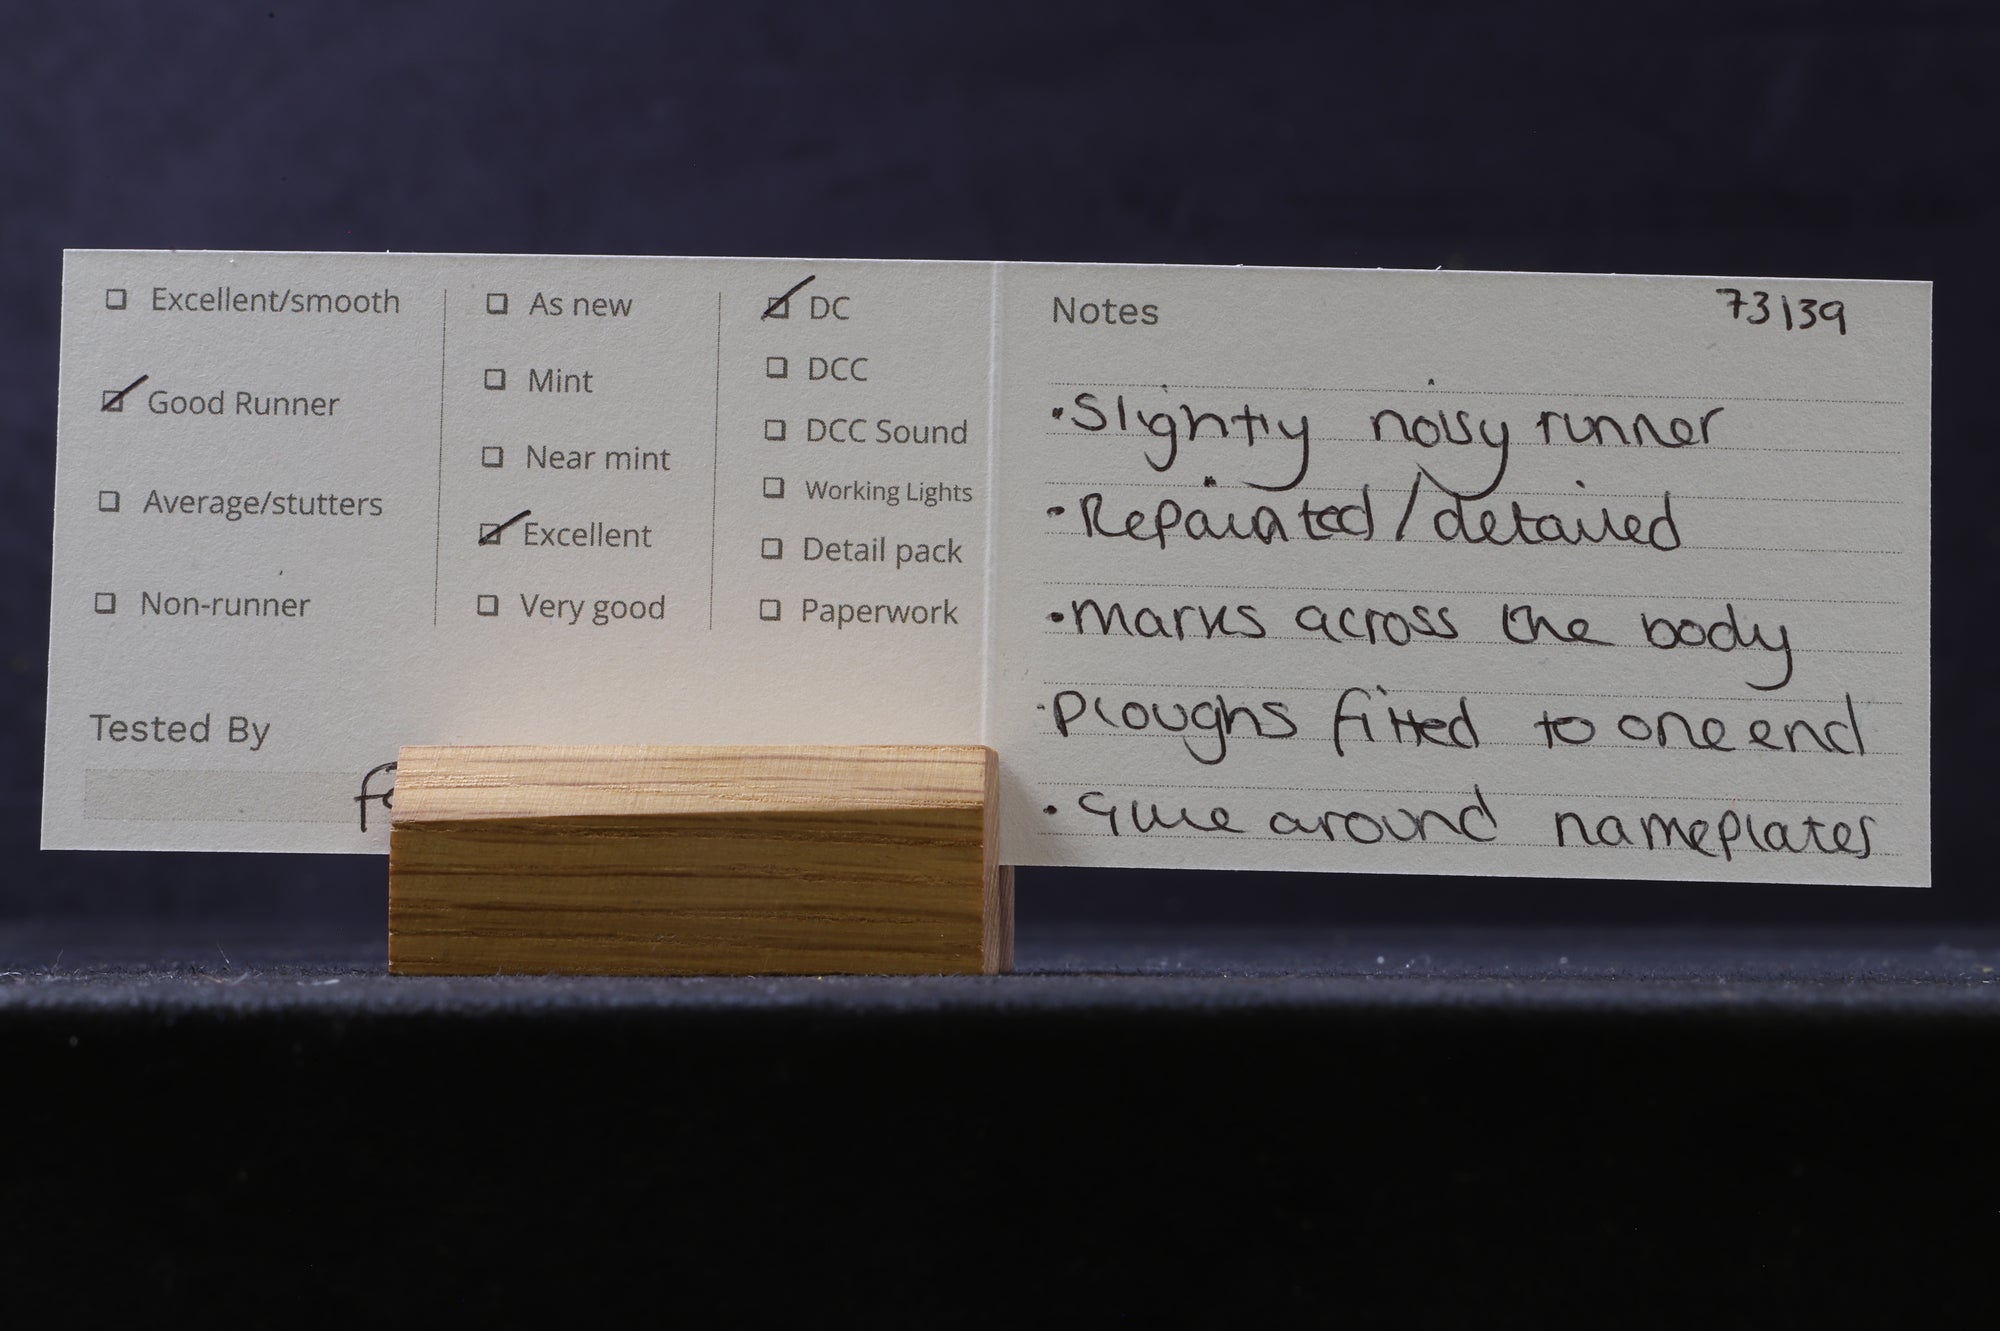 Excellent/smooth
Good Runner
Average/stutters
Non-runner
Tested By
As new
Mint
Near mint
Excellent
Very good
DC
DCC
DCC Sound
Working Lights
Detail pack
Paperwork
Notes
73139
• Slightly noisy runner
• Repainted/detailed
• Marks across the body
• Ploughs fitted to one end
• Glue around nameplates